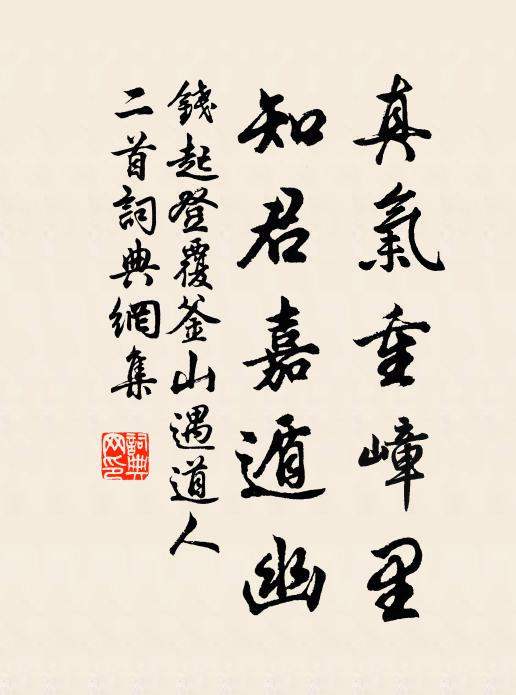 真氣重嶂里
知君嘉遁幽
錢起登覆釜山遇道人
二首詞典網集
詞典
网印